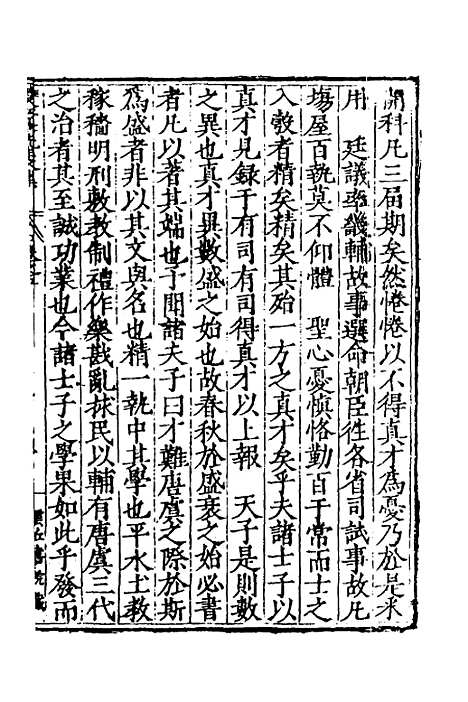 開科凡三届期矣然惓惓以不得真才為憂乃於是采
用　廷議率畿輔故事選命朝臣徃各省司試事故凡
塲屋百執莫不仰體　聖心憂慎恪勤百于常而士之
入彀者精矣精矣其殆一方之真才矣乎夫諸士子以
真才見録于有司有司得真才以上報　天子是則數
之異也真才異數盛之始也故春秋於盛衰之始必書
者凡以著其端也予聞諸夫子曰才難唐虞之際於斯
為盛者非以其文與名也精一執中其學也平水土教
稼穡明刑敷教制禮作樂戡亂捄民以輔有唐虞三代
之治者其至誠功業也今諸士子之學果如此乎發而